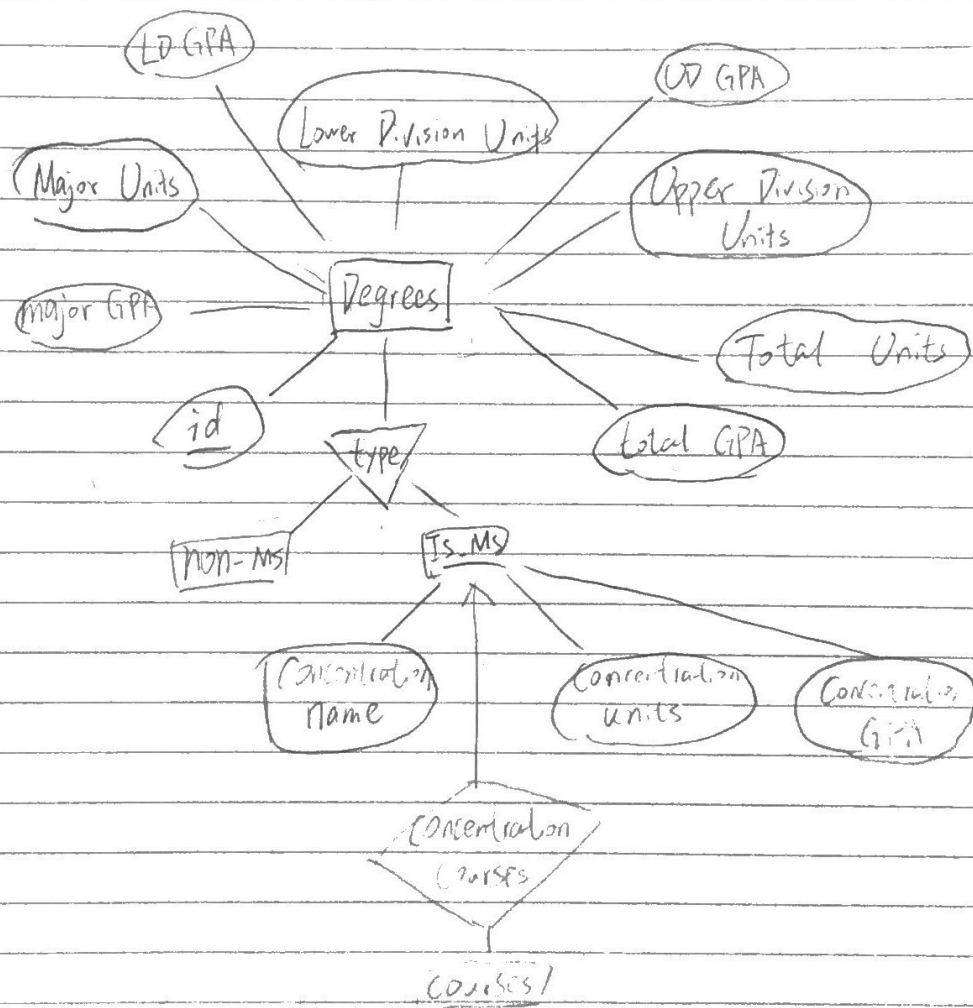 LD GPA
UD GPA
Lower Division Units
Major Units
Upper Division
Units
Degrees
major GPA
Total Units
id
type
total GPA
non-Ms
Is_Ms
Concentration
name
Concentration
units
Concentration
GPA
Concentration
Courses
courses